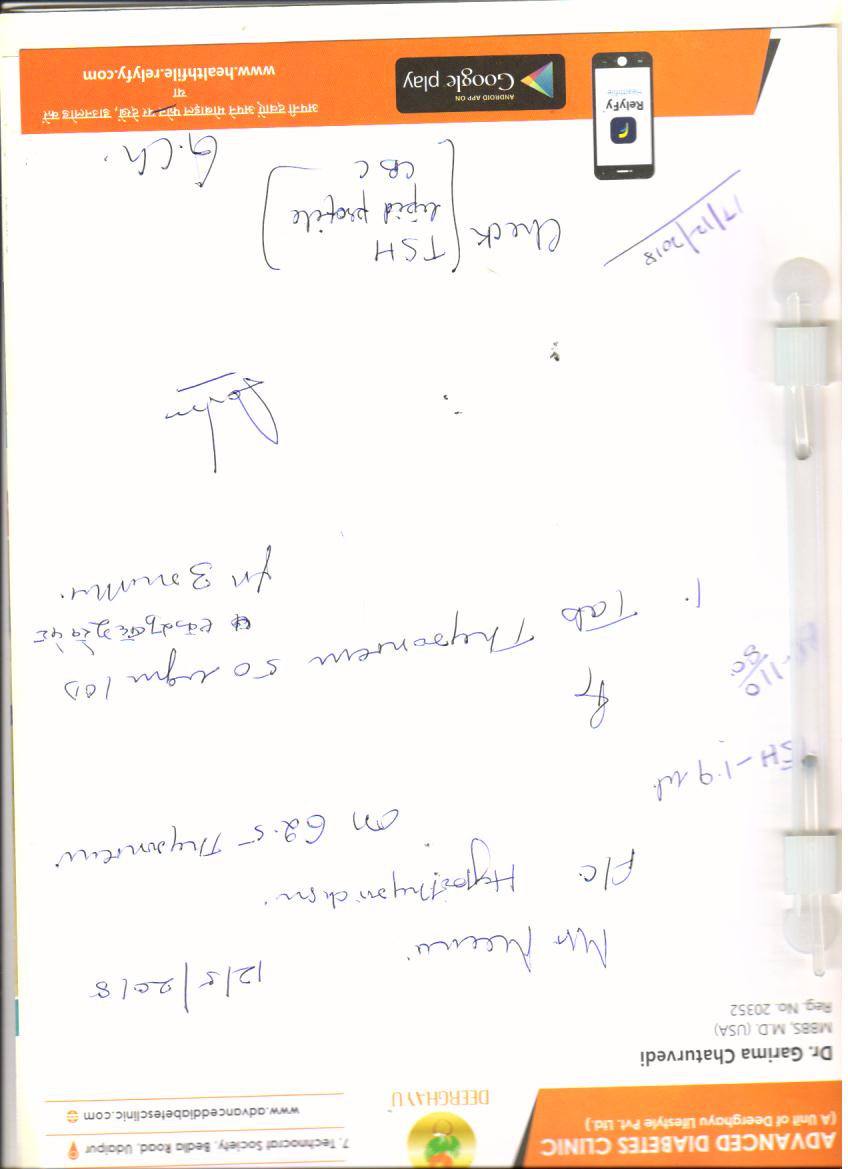 ADVANCED DIABETES CLINIC
(A Unit of Deerghayu Lifestyle Pvt. Ltd.)
DEERGHAYU
7, Technocrat Society, Bedla Road, Udaipur
www.advanceddiabetesclinic.com
Dr. Garima Chaturvedi
MBBS, M.D. (USA)
Reg. No. 20352
12/5/2018
Meenu
F/C Hypothyroidism
on 62.5 Thyronorm
TSH - 1.9
110
80
1. Tab Thyronorm 50 ugm 1OD
3 months
17/12/2018
Check TSH
lipid profile
CBC
G.Ch.
RelyFy
Healthfile
ANDROID APP ON
Google play
अपनी दवाएं अपने मोबाइल फोन पर देखें, डाउनलोड करें
या
www.healthfile.relyfy.com